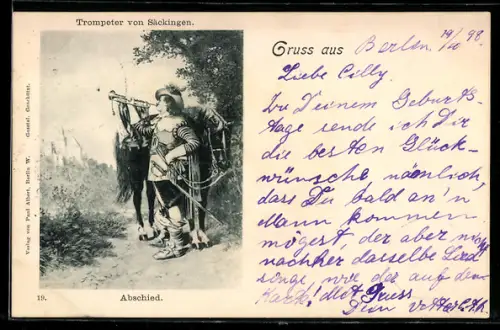 Trompeter von Säckingen.
Gruss aus Berlin 19/10 98.
Liebe Cilly.
Zu Deinem Geburts-
tage sende ich Dir
die besten Glück-
wünsche nämlich,
dass Du bald an'n
Mann kommen
mögest, der aber nicht
nachher dasselbe Lied
singe, wie der auf dem
Mark! Mit Gruss
Dein Vetter
Verlag von Paul Albert, Berlin W. Gesetzl. Geschützt.
19. Abschied.